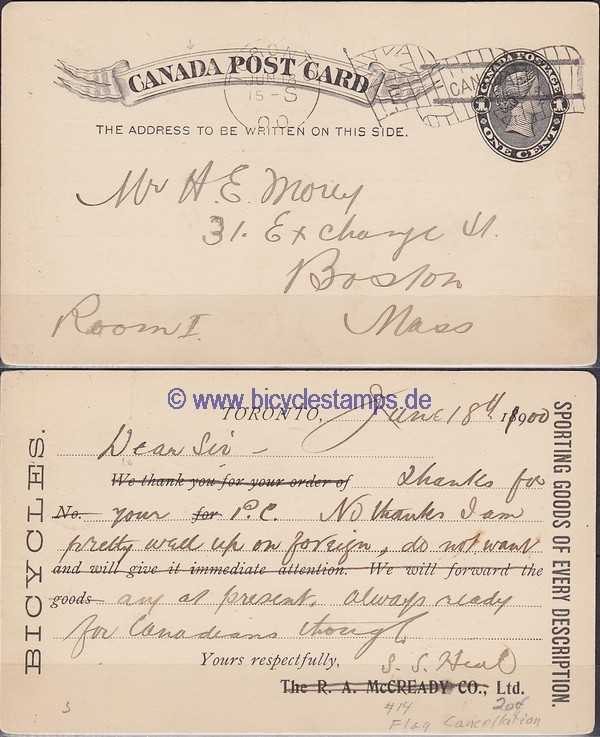 CANADA POST CARD
15-S
00
CAN
CANADA POSTAGE
1 1
ONE CENT
THE ADDRESS TO BE WRITTEN ON THIS SIDE.
Mr H. E. Morey
31. Exchange St.
Boston
Room I.
Mass
© www.bicyclestamps.de
TORONTO, June 18th 1900
Dear Sir -
We thank you for your order of Thanks for
No. your for P.C. No thanks I am
pretty well up on foreign, do not want
and will give it immediate attention. We will forward the
goods any at present. always ready
for Canadians though
Yours respectfully, S. S. Heal
The R. A. McCREADY CO., Ltd.
#14 20¢
Flag Cancellation
BICYCLES.
SPORTING GOODS OF EVERY DESCRIPTION.